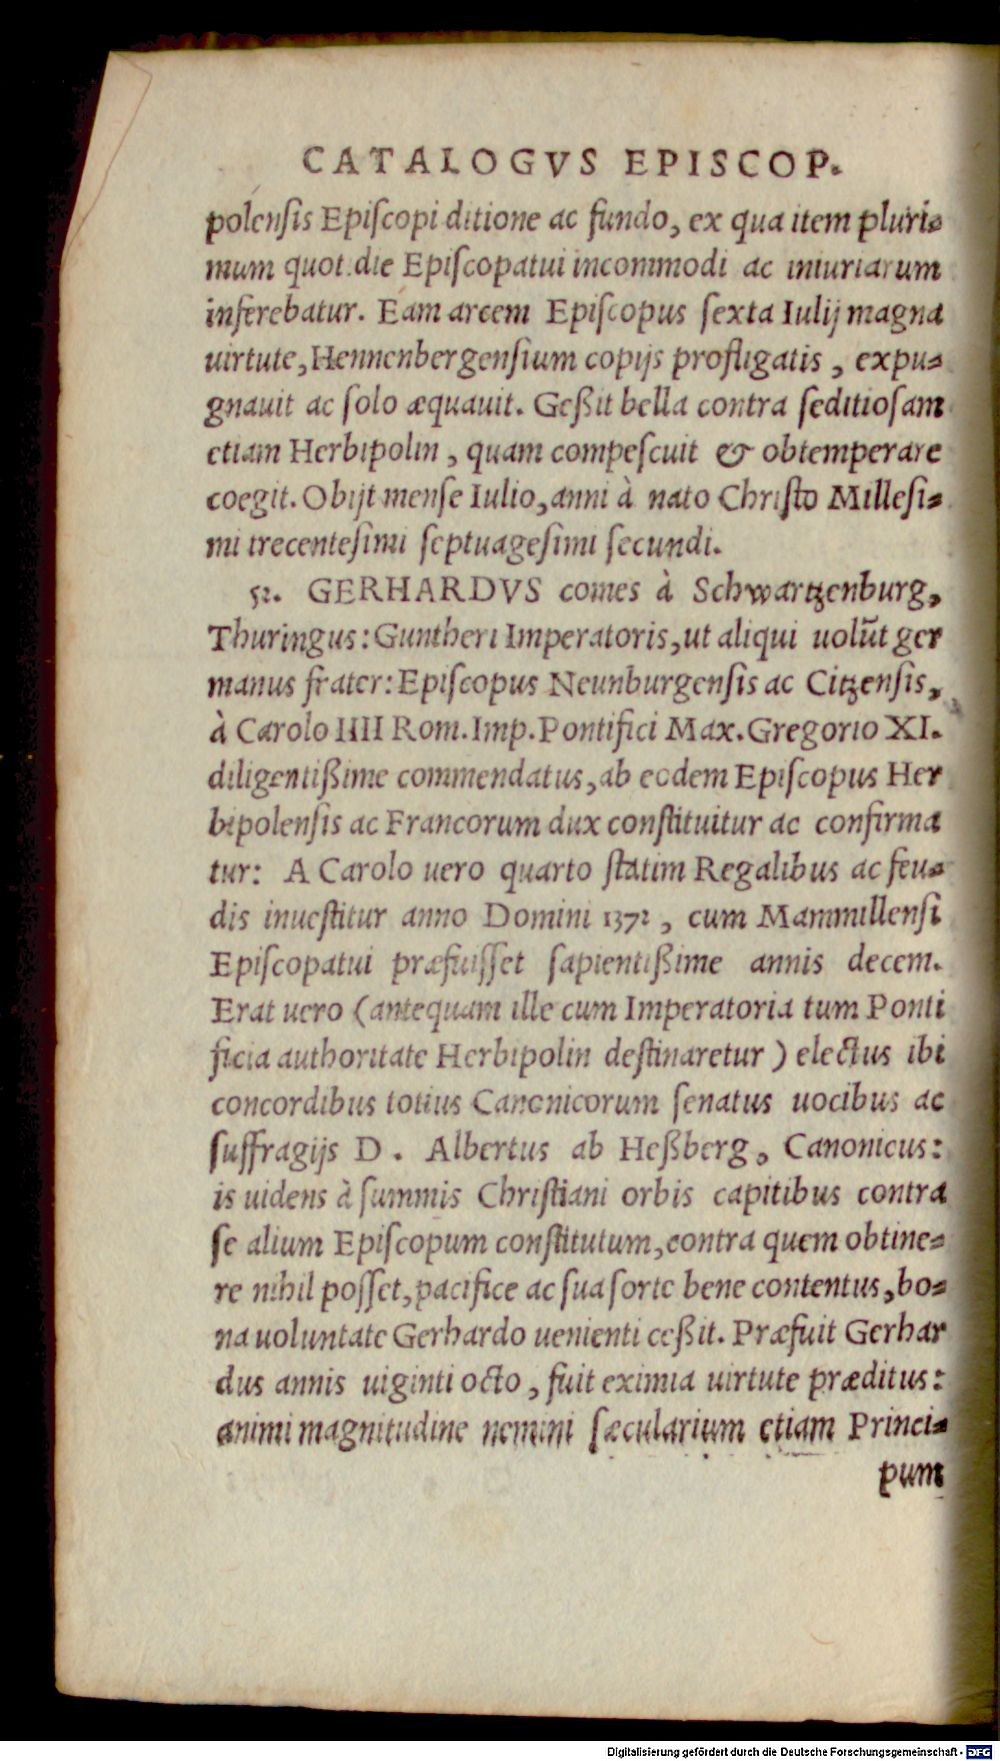 CATALOGVS EPISCOP.
polensis Episcopi ditione ac fundo, ex qua item pluri-
mum quot die Episcopatui incommodi ac iniuriarum
inferebatur. Eam arcem Episcopus sexta Iulij magna
uirtute, Hennenbergensium copijs profligatis, expu-
gnauit ac solo æquauit. Geßit bella contra seditiosam
etiam Herbipolin, quam compescuit & obtemperare
coegit. Obijt mense Iulio, anni à nato Christo Millesi-
mi trecentesimi septuagesimi secundi.
52. GERHARDVS comes à Schwartzenburg,
Thuringus: Guntheri Imperatoris, ut aliqui uolūt ger
manus frater: Episcopus Neunburgensis ac Citzensis,
à Carolo IIII Rom. Imp. Pontifici Max. Gregorio XI.
diligentißime commendatus, ab eodem Episcopus Her
bipolensis ac Francorum dux constituitur ac confirma
tur: A Carolo uero quarto statim Regalibus ac feu-
dis inuestitur anno Domini 1372, cum Mammillensi
Episcopatui præfuisset sapientißime annis decem.
Erat uero (antequam ille cum Imperatoria tum Ponti
ficia authoritate Herbipolin destinaretur) electus ibi
concordibus totius Canonicorum senatus uocibus ac
suffragijs D. Albertus ab Heßberg, Canonicus:
is uidens à summis Christiani orbis capitibus contra
se alium Episcopum constitutum, contra quem obtine-
re nihil posset, pacifice ac sua sorte bene contentus, bo-
na uoluntate Gerhardo uenienti ceßit. Præfuit Gerhar
dus annis uiginti octo, fuit eximia uirtute præditus:
animi magnitudine nemini sæcularium etiam Princi-
pum
Digitalisierung gefördert durch die Deutsche Forschungsgemeinschaft - DFG